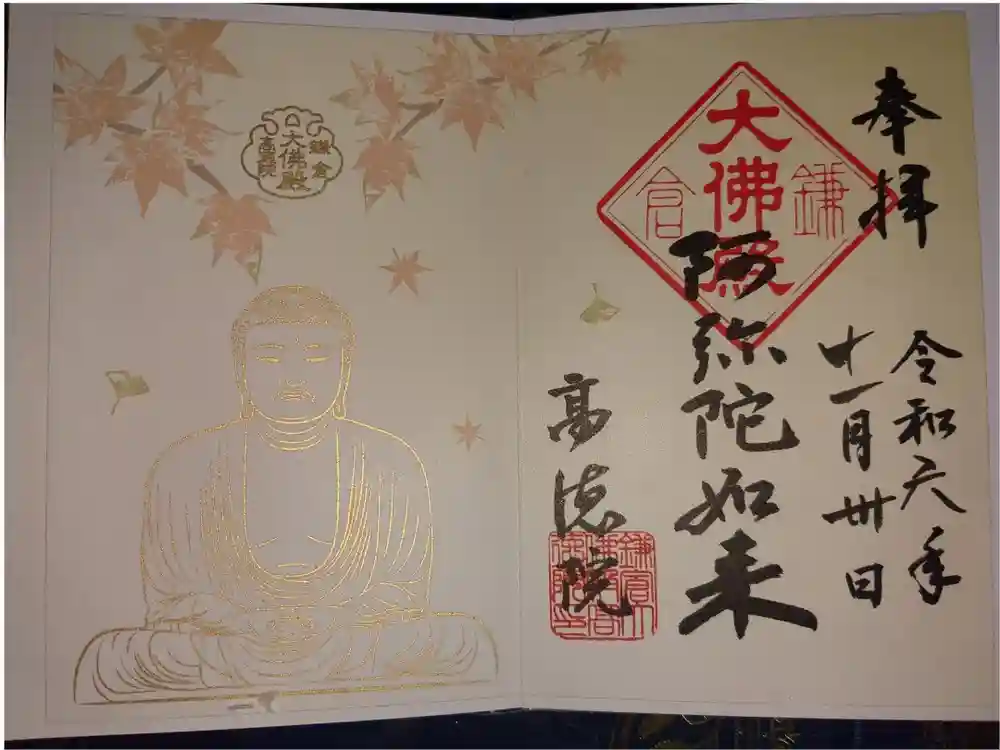 奉拝
令和六年
十一月卅日
鎌
大佛殿
倉
阿弥陀如来
高徳院
鎌倉
大佛殿
高徳院